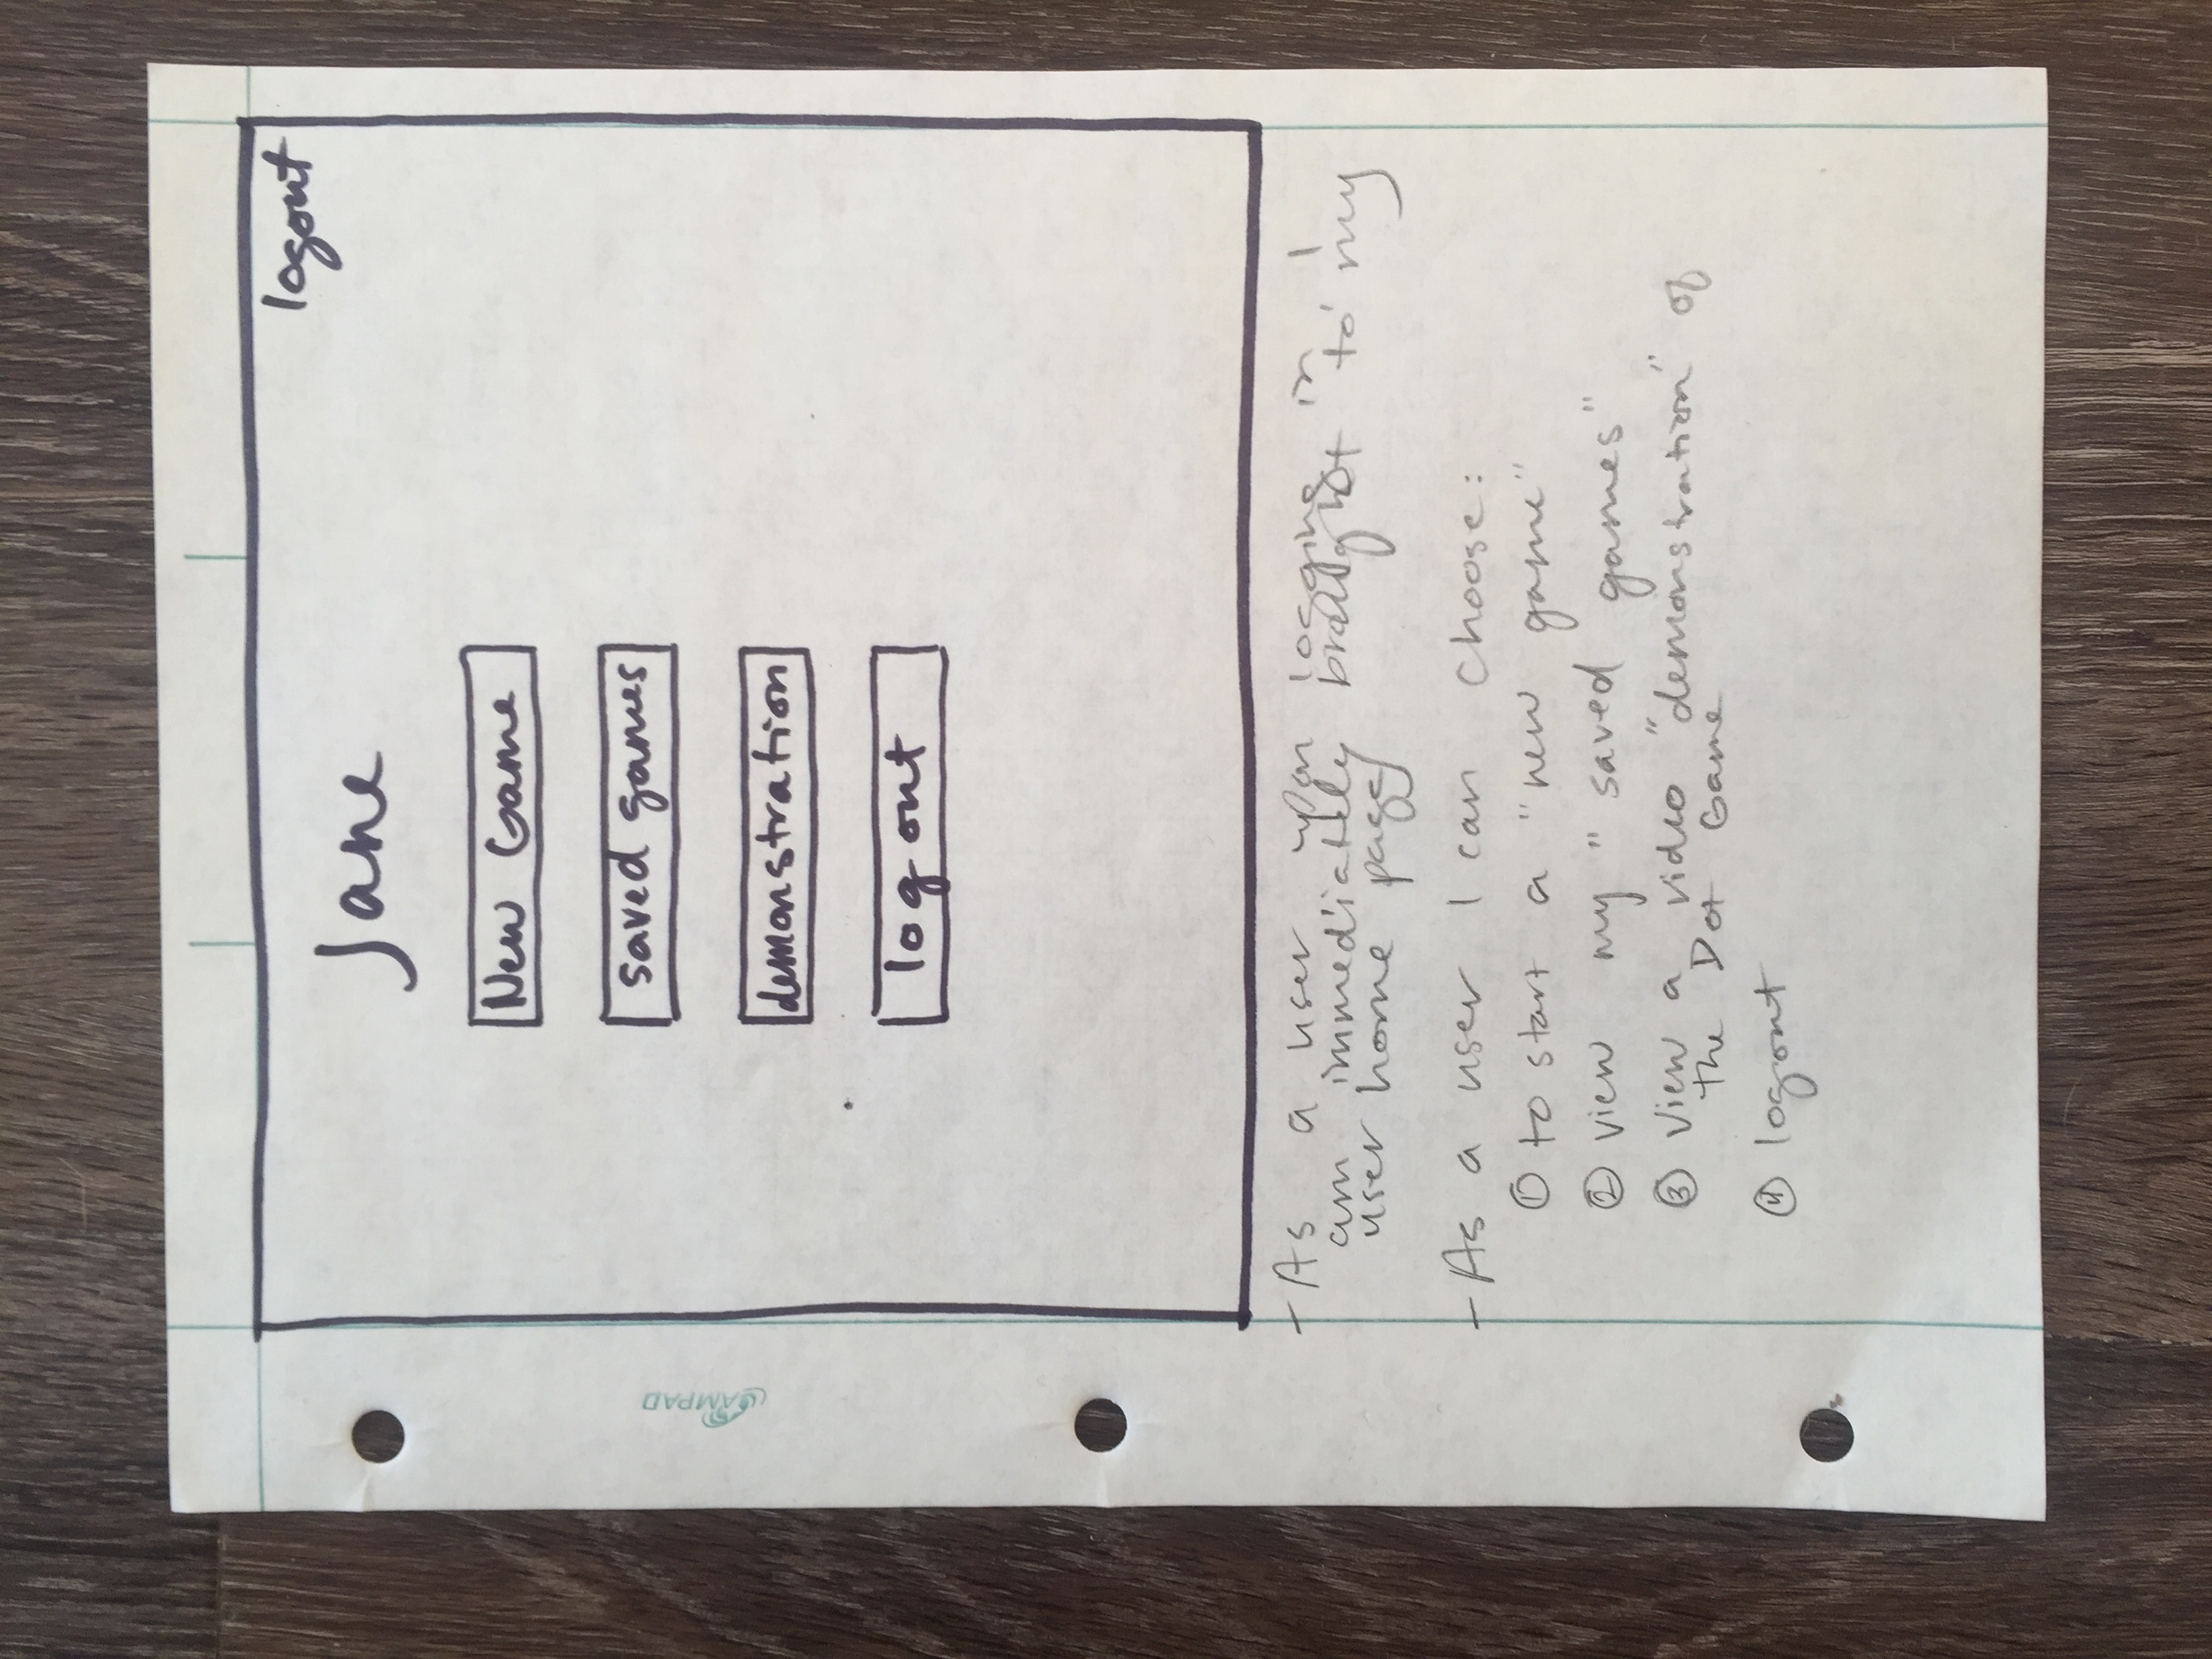 logout
Jane
New Game
saved games
demonstration
logout
AMPAD
- As a user upon logging in I
am immediately brought to my
user home page
- As a user I can choose:
① to start a "new game"
② view my "saved games"
③ view a video "demonstration" of
the Dot Game
④ logout